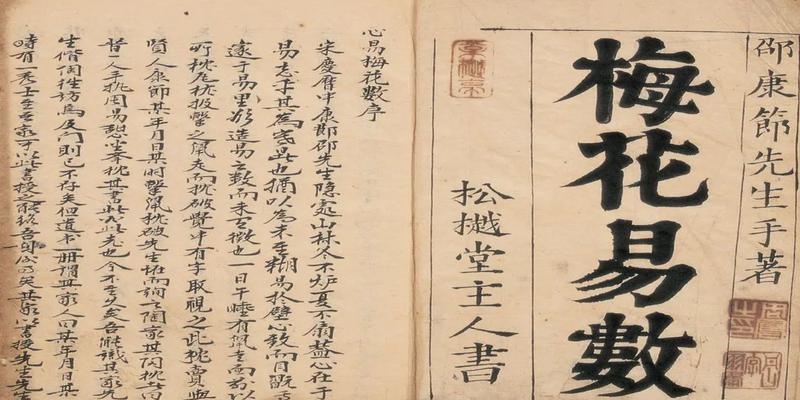 邵康節先生手著
梅花易數
松樾堂主人書
心易梅花數序
宋慶曆中康節邵先生隱處山林冬不炉夏不扇蓋心在于
易忘乎其為寒暑也猶以為未至糊易於壁心致而目翫
邃于易里欲造易之數而未至徵也一日午睡有鼠走而前以
所枕瓦枕投擊之鼠走而枕破覺中有字取視之此枕賣與
賢人康節某年月日某時擊鼠枕破先生恠而詢之陶家其陶枕者曰
昔一人手执周易憩坐举枕其書此必此老也今不至久矣吾能識其家先
生偕陶往訪焉及门則已不存矣但遺书一册謂其家人曰某年月日某
時有一秀士至吾家可以此書授之能終吾身矣其家以書授先生先生